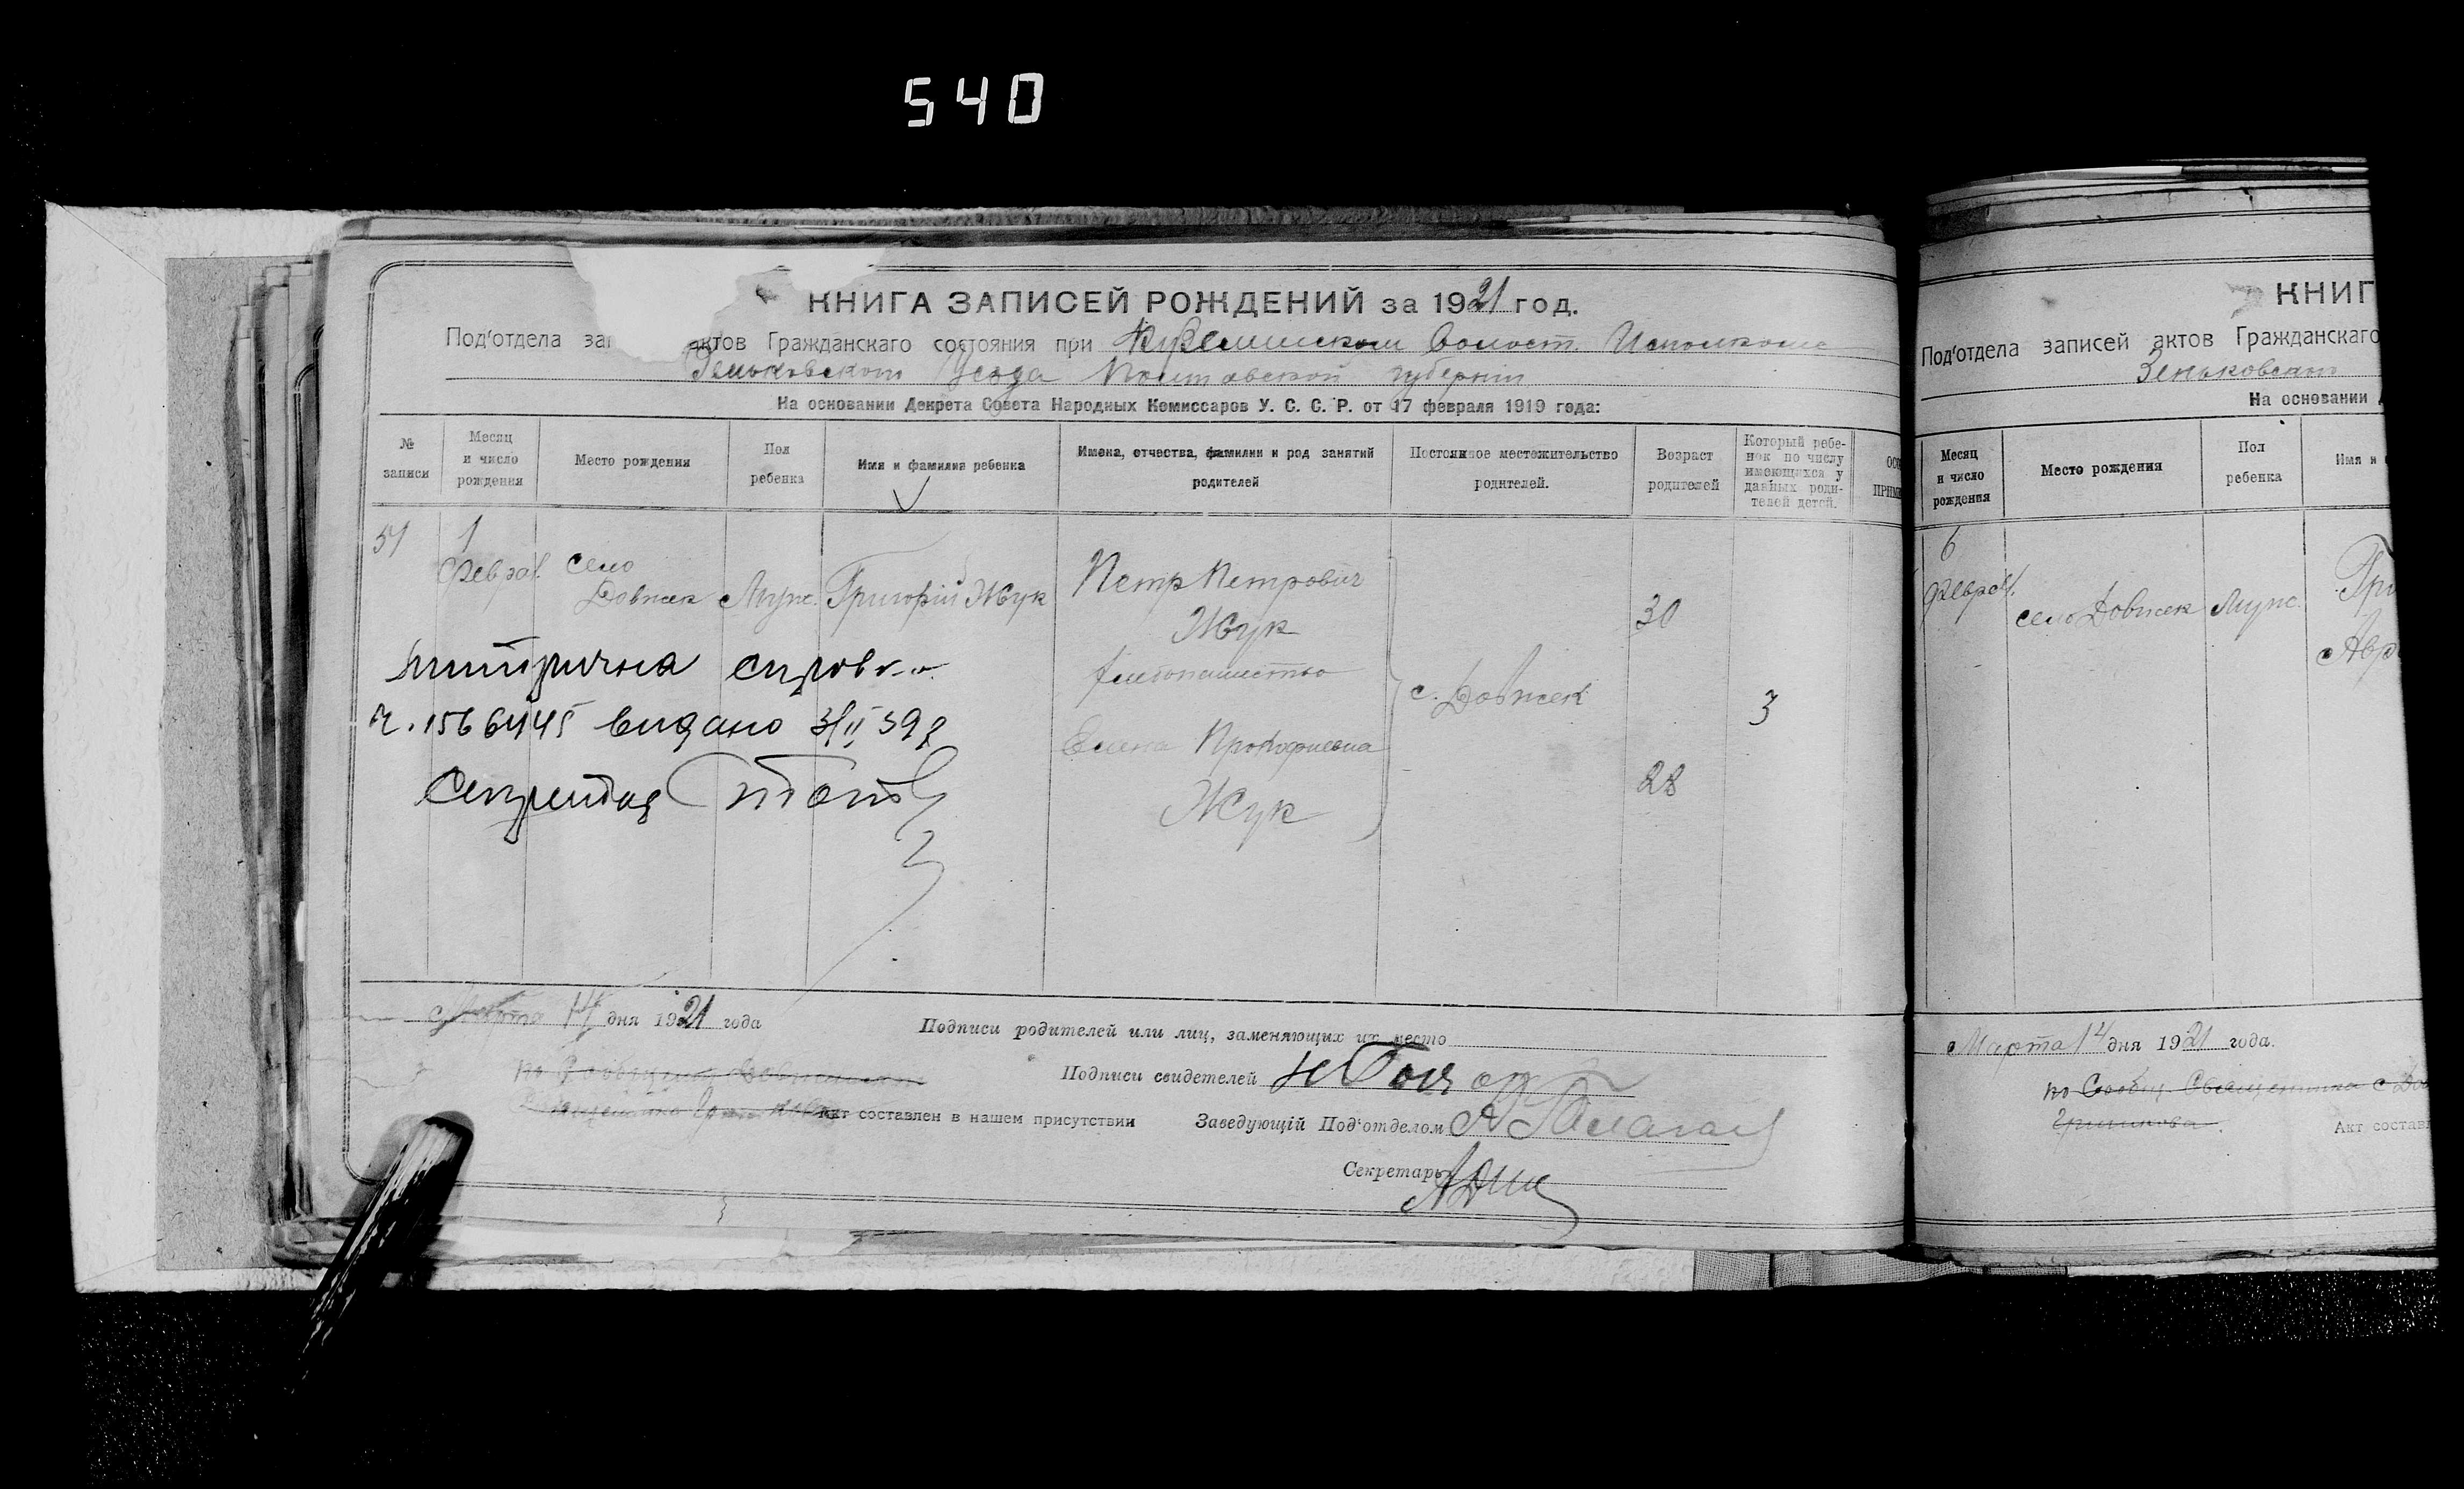 540
КНИГА ЗАПИСЕЙ РОЖДЕНИЙ за 1921 год.
Под'отдела за актов Гражданскаго состояния при Волост. Исполкоме
Зеньковского Уезда Полтавской губернии
На основании Декрета Совета Народных Комиссаров У. С. С. Р. от 17 февраля 1919 года:
№ записи
Месяц и число рождения
Место рождения
Пол ребенка
Имя и фамилия ребенка
Имена, отчества, фамилии и род занятий родителей
Постоянное местожительство родителей.
Возраст родителей
Который ребенок по числу имеющихся у данных родителей детей.
51
1 Феврал.
село Довжек
Муж.
Григорій Жук
Петр Петрович
Жук
хлебопашество
Елена Прокофиевна
Жук
с. Довжек
30
28
3
метрична
ч. 1566445 видано 3/II 39 р
Секретар
Марта 14 дня 1921 года
Подписи родителей или лиц, заменяющих их место
Подписи свидетелей
Акт составлен в нашем присутствии
Заведующій Под'отделом
Секретарь
КНИГ
Под'отдела записей актов Гражданскаго
Зеньковского
На основании
Месяц и число рождения
Место рождения
Пол ребенка
Имя и
6 Феврал.
село Довжек
Муж.
Гри
Авр
Марта 14 дня 1921 года.
по Сообщ. Священника с
Акт состав